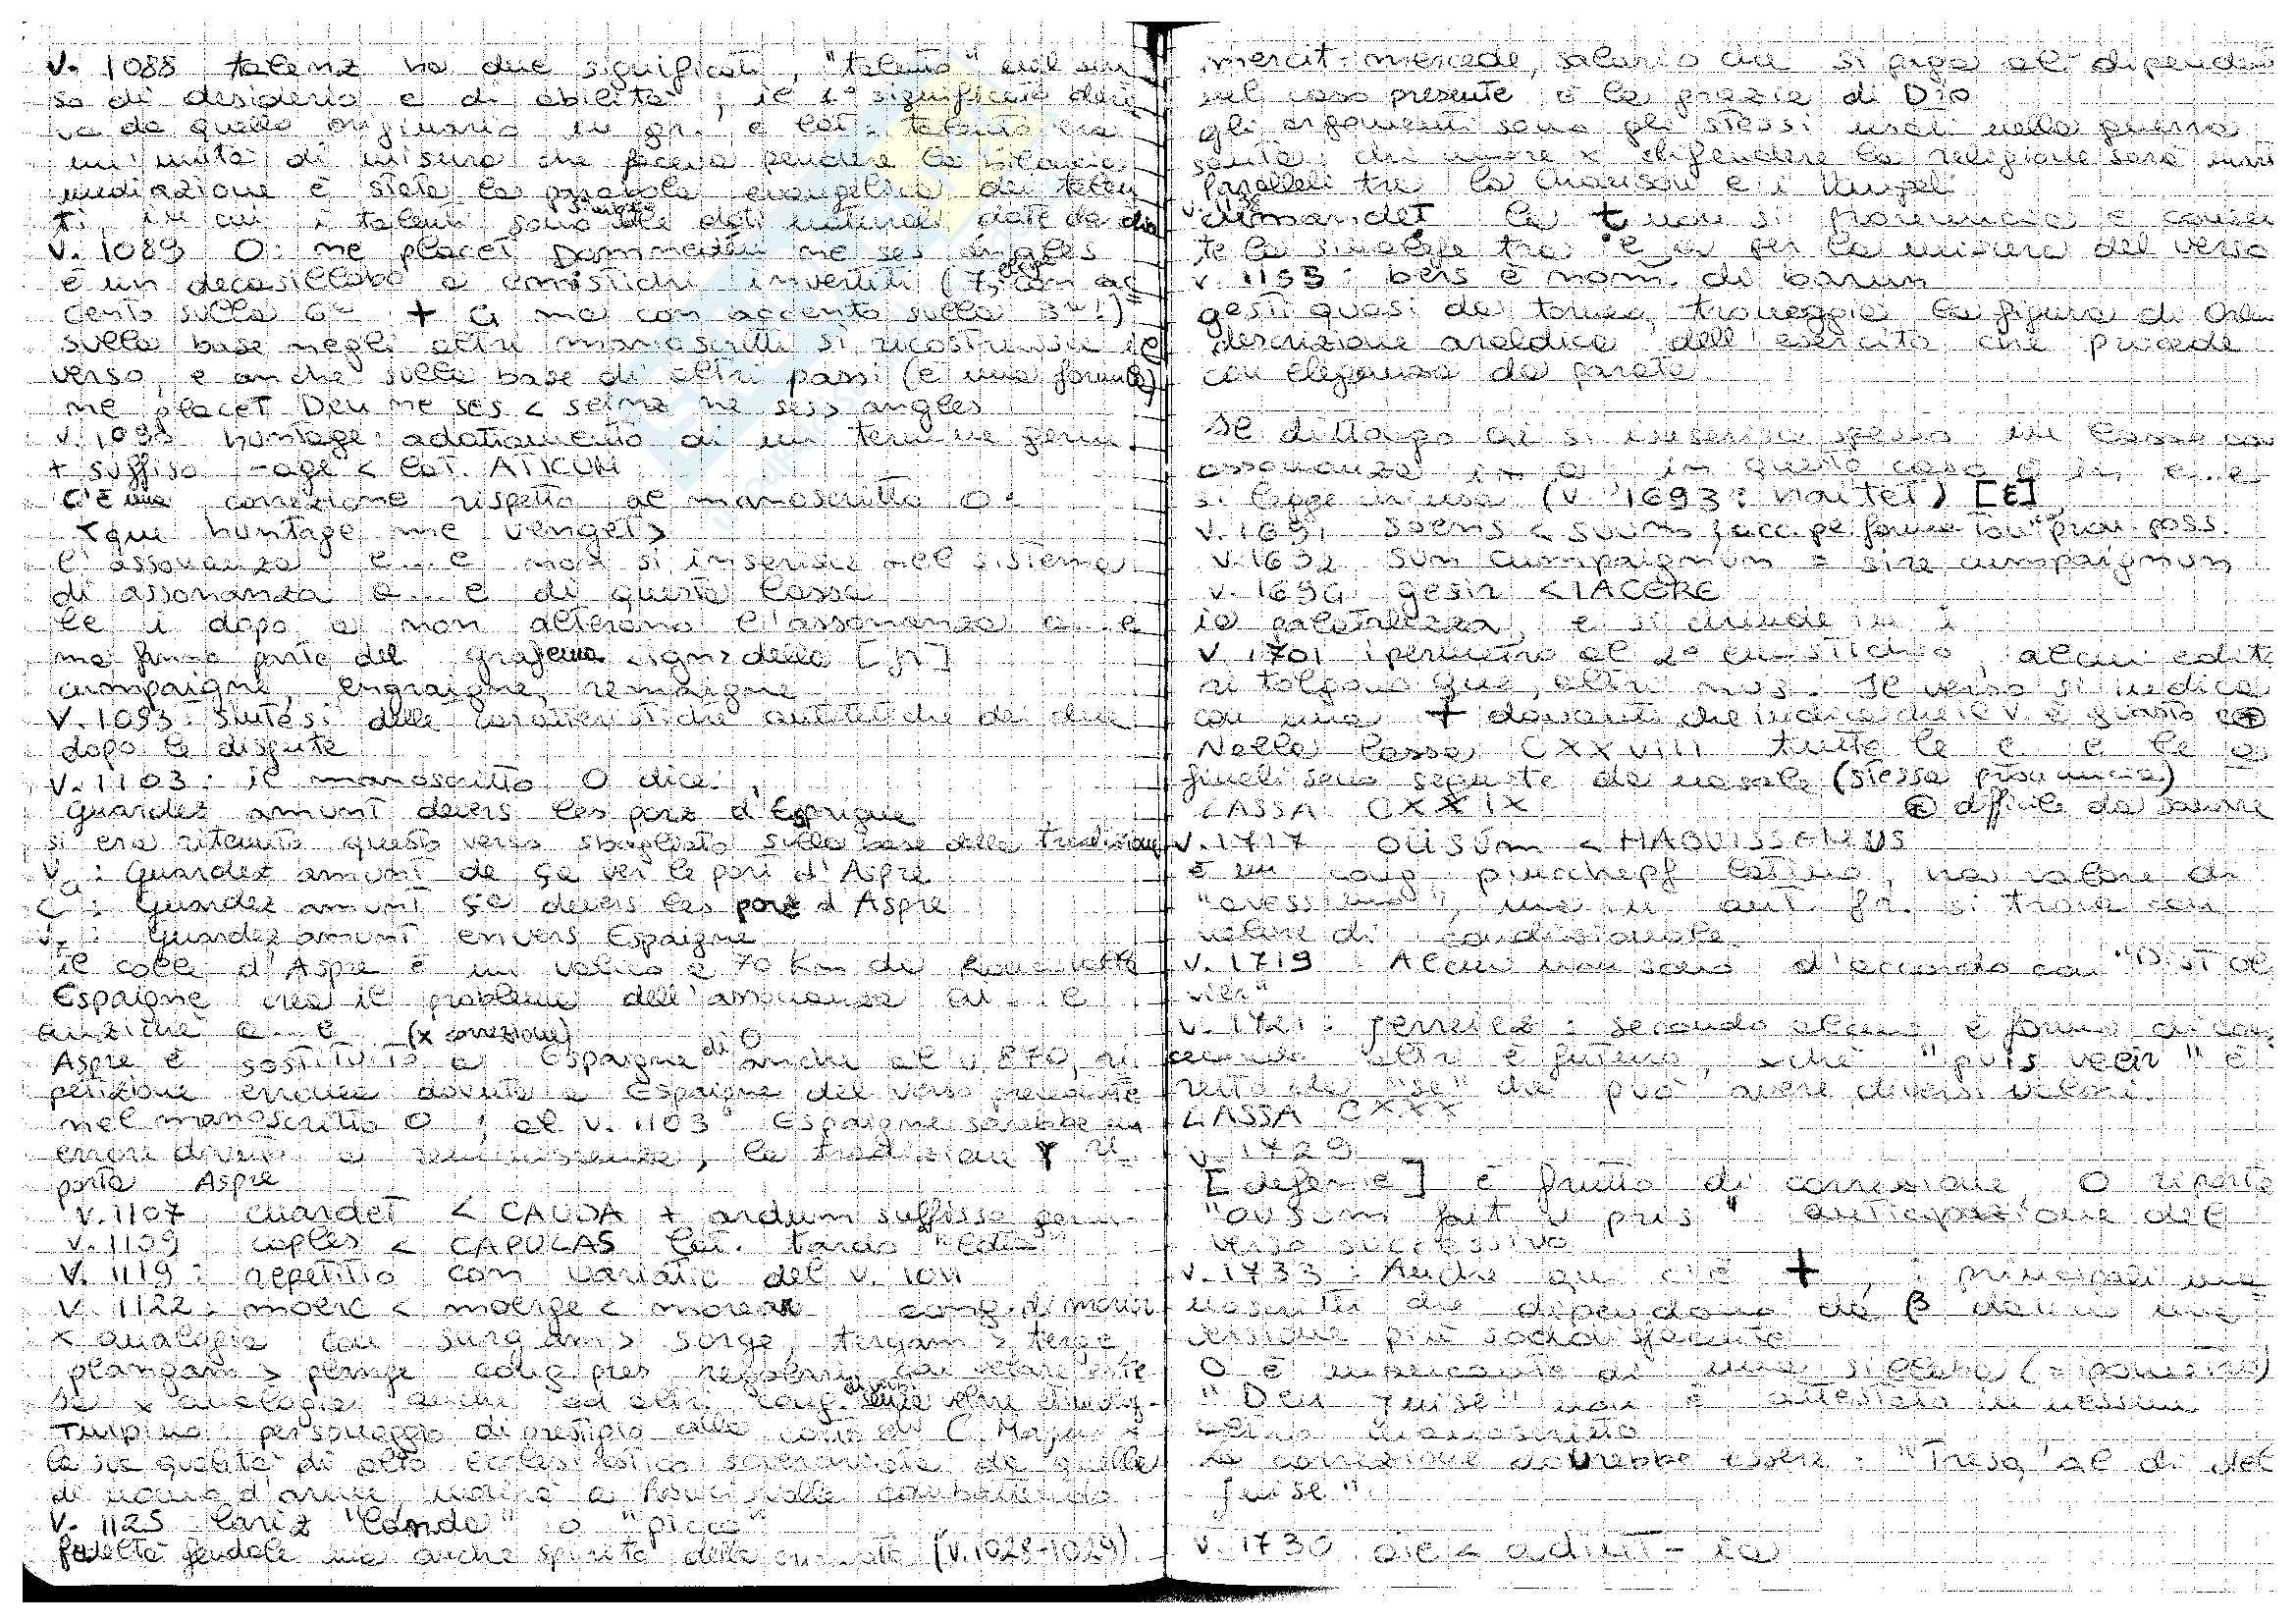 v. 1088 talenz ha due significati, "talento" nel sen
so di desiderio e di abilità; il 1° significato deri
va da quello originario in gr. e lat.: talento era
un'unità di misura che faceva pendere la bilancia
mediazione è stata la parabola evangelica dei talen
ti, in cui i talenti sono le doti naturali date da dio
v. 1089 O: ne placet Damnedeu ne ses angles
è un decasillabo a emistichi invertiti (7, con ac
cento sulla 6ª + 4 ma con accento sulla 3ª!)
sulla base negli altri manoscritti si ricostruisce il
verso, e anche sulla base di altri passi (è una formula)
ne placet Deu ne ses < seinz ne sess angles
v. 1091 huntage: adattamento di un termine germ.
+ suffiso -age < lat. ATICUM
c'è una correzione rispetto al manoscritto O:
<que huntage me venget>
l'assonanza e...e non si inserisce nel sistema
di assonanza a...e di questa lassa
le i dopo a non alterano l'assonanza a...e
ma fanno parte del grafema <ign> della [ɲ]
cumpaigne, engraigne, remaigne
v. 1093: sintesi delle caratteristiche antitetiche dei due
dopo la disputa
v. 1103: il manoscritto O dice:
Guardez amunt devers les porz d'Espaigne
si era ritenuto questo verso sbagliato sulla base della tradizione
V4: Guardez amunt de ça ver le port d'Aspre
C: Guardez amunt ça devers les porz d'Aspre
V7: Guardez amunt envers Espaigne
il colle d'Aspre è un valico a 70 km da Roncisvalle
Espaigne crea il problema dell'assonanza ai...e
anziché a...e (x correzione)
Aspre è sostituito a Espaigne di O anche al v. 870, ri
petizione erronea dovuta a Espaigne del verso precedente
nel manoscritto O; al v. 1103 Espaigne sarebbe un
errore dovuto a reminiscenza, la tradizione γ ri
porta Aspre
v. 1107 cuardet < CAUDA + ardum suffisso germ.
v. 1109 coples < CAPULAS lat. tardo
v. 1119: repetitio con variatio del v. 1011
v. 1122: moerc < moerge < morear cong. di morir
x analogia con surgam > sorge, tergam > terge,
plangam > plange cong. pres. regolari con velare este
sa x analogia anche ad altri cong. senza velare etimolog.
Turpino: personaggio di prestigio alla corte di C. Magno x
la sua qualità di alto ecclesiastico sacerdotale da quella
di uomo d'arme, morirà a Roncisvalle combattendo
v. 1125 lariz "landa" o "picco"
fedeltà feudale ma anche spirito della crociata (v. 1028-1029)
merit: mercede, salario che si paga al dipendente
nel caso presente è la grazia di Dio
gli argomenti sono gli stessi usati nella guerra
santa: chi muore x difendere la religione sarà
Paralleli tra la Chanson e i Vangeli
cumandet la t non si pronuncia e consen
te la sinalefe tra e ed a per la misura del verso
v. 1155: bers è nom. di barun
gesti quasi da torneo, troneggia la figura di Orlando
descrizione araldica dell'esercito che procede
con eleganza da parata
Il dittongo ai si inserisce spesso in lasse con
assonanza in a, in questo caso è in e...e
si legge chiusa (v. 1693: haltet) [ɛ]
v. 1691 soens < SUUM, acc. pl. forma ton. pron. poss.
v. 1692 sun cumpaignun = sire cumpaignun
v. 1694 gesir < IACERE
ia palatalizza, e si chiude in i
v. 1701 ipermetro al 2° emistichio, alcuni edito
ri tolgono que, altri nus. Il verso si indica
con una + davanti che indica che il v. è guasto e ⊕
Nella lassa CXXVIII tutte le e e le a
finali sono seguite da nasale (stessa pronuncia)
LASSA CXXIX ⊕ difficile da sanare
v. 1717 oüsum < HABUISSEMUS
è un cong. piuccheppf latino, ha valore di
"avessimo", ma in ant. fr. si trova con
valore di condizionale
v. 1719: Alcuni non sono d'accordo con "Dist Oli
vier"
v. 1721: jerreiez: secondo alcuni è forma di con.
secondo altri è futuro, xché "puis veeir" è
retto da "se" che può avere diversi valori.
LASSA CXXX
v. 1729
[deserte] è frutto di correzione, O riporta
"ousum fait u pris" anticipazione del
verso successivo
v. 1733: Anche qui c'è +, i principali ma
noscritti che dipendono da β danno una
versione più soddisfacente
O è mancante di una sillaba (ipometro)
"Deu juise" non è attestato in nessun
altro manoscritto
La correzione dovrebbe essere: "Tresq'al di del
juise".
v. 1730